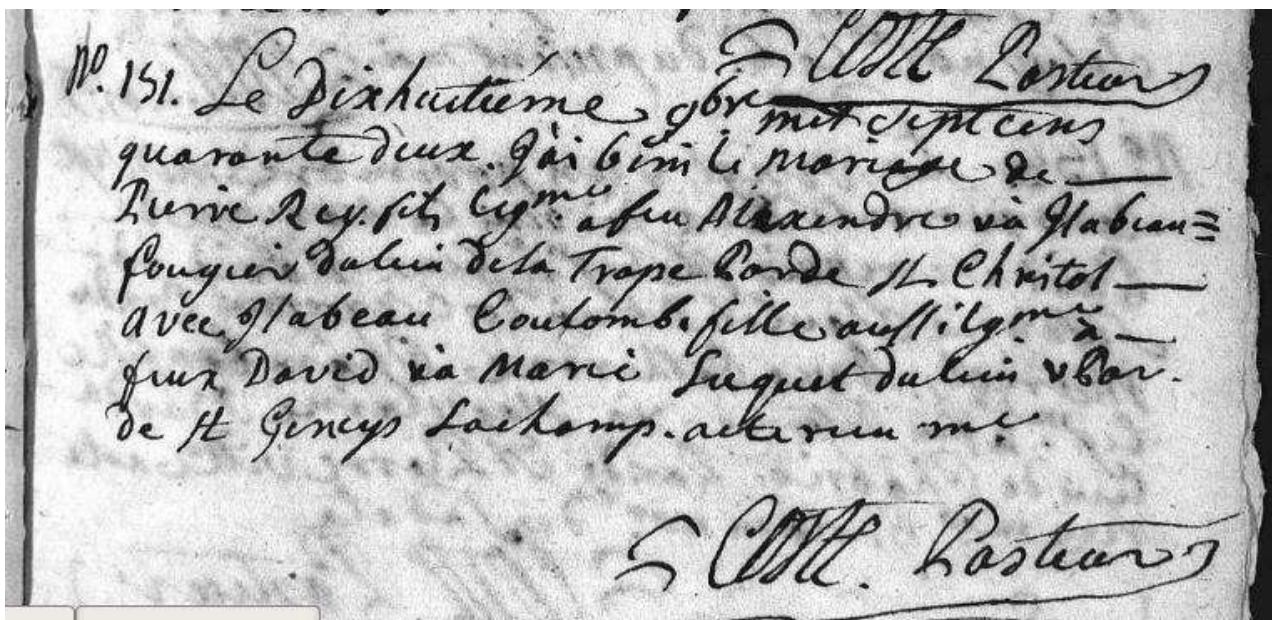 COSTE Pasteur
N°. 151. Le Dixhuitiéme 9bre mil septcens
quarante deux. J'ai béni le mariage de
Pierre Rey. fils legme a feu Alexendre & à Isabeau=
fougier du lieu de la Trape Par de St Christol
avec Isabeau Coulomb. fille aussi lgme à
feux David & à Marie Suquet du lieu & Par.
de St Geneys Lachamp. acte receu me
COSTE. Pasteur